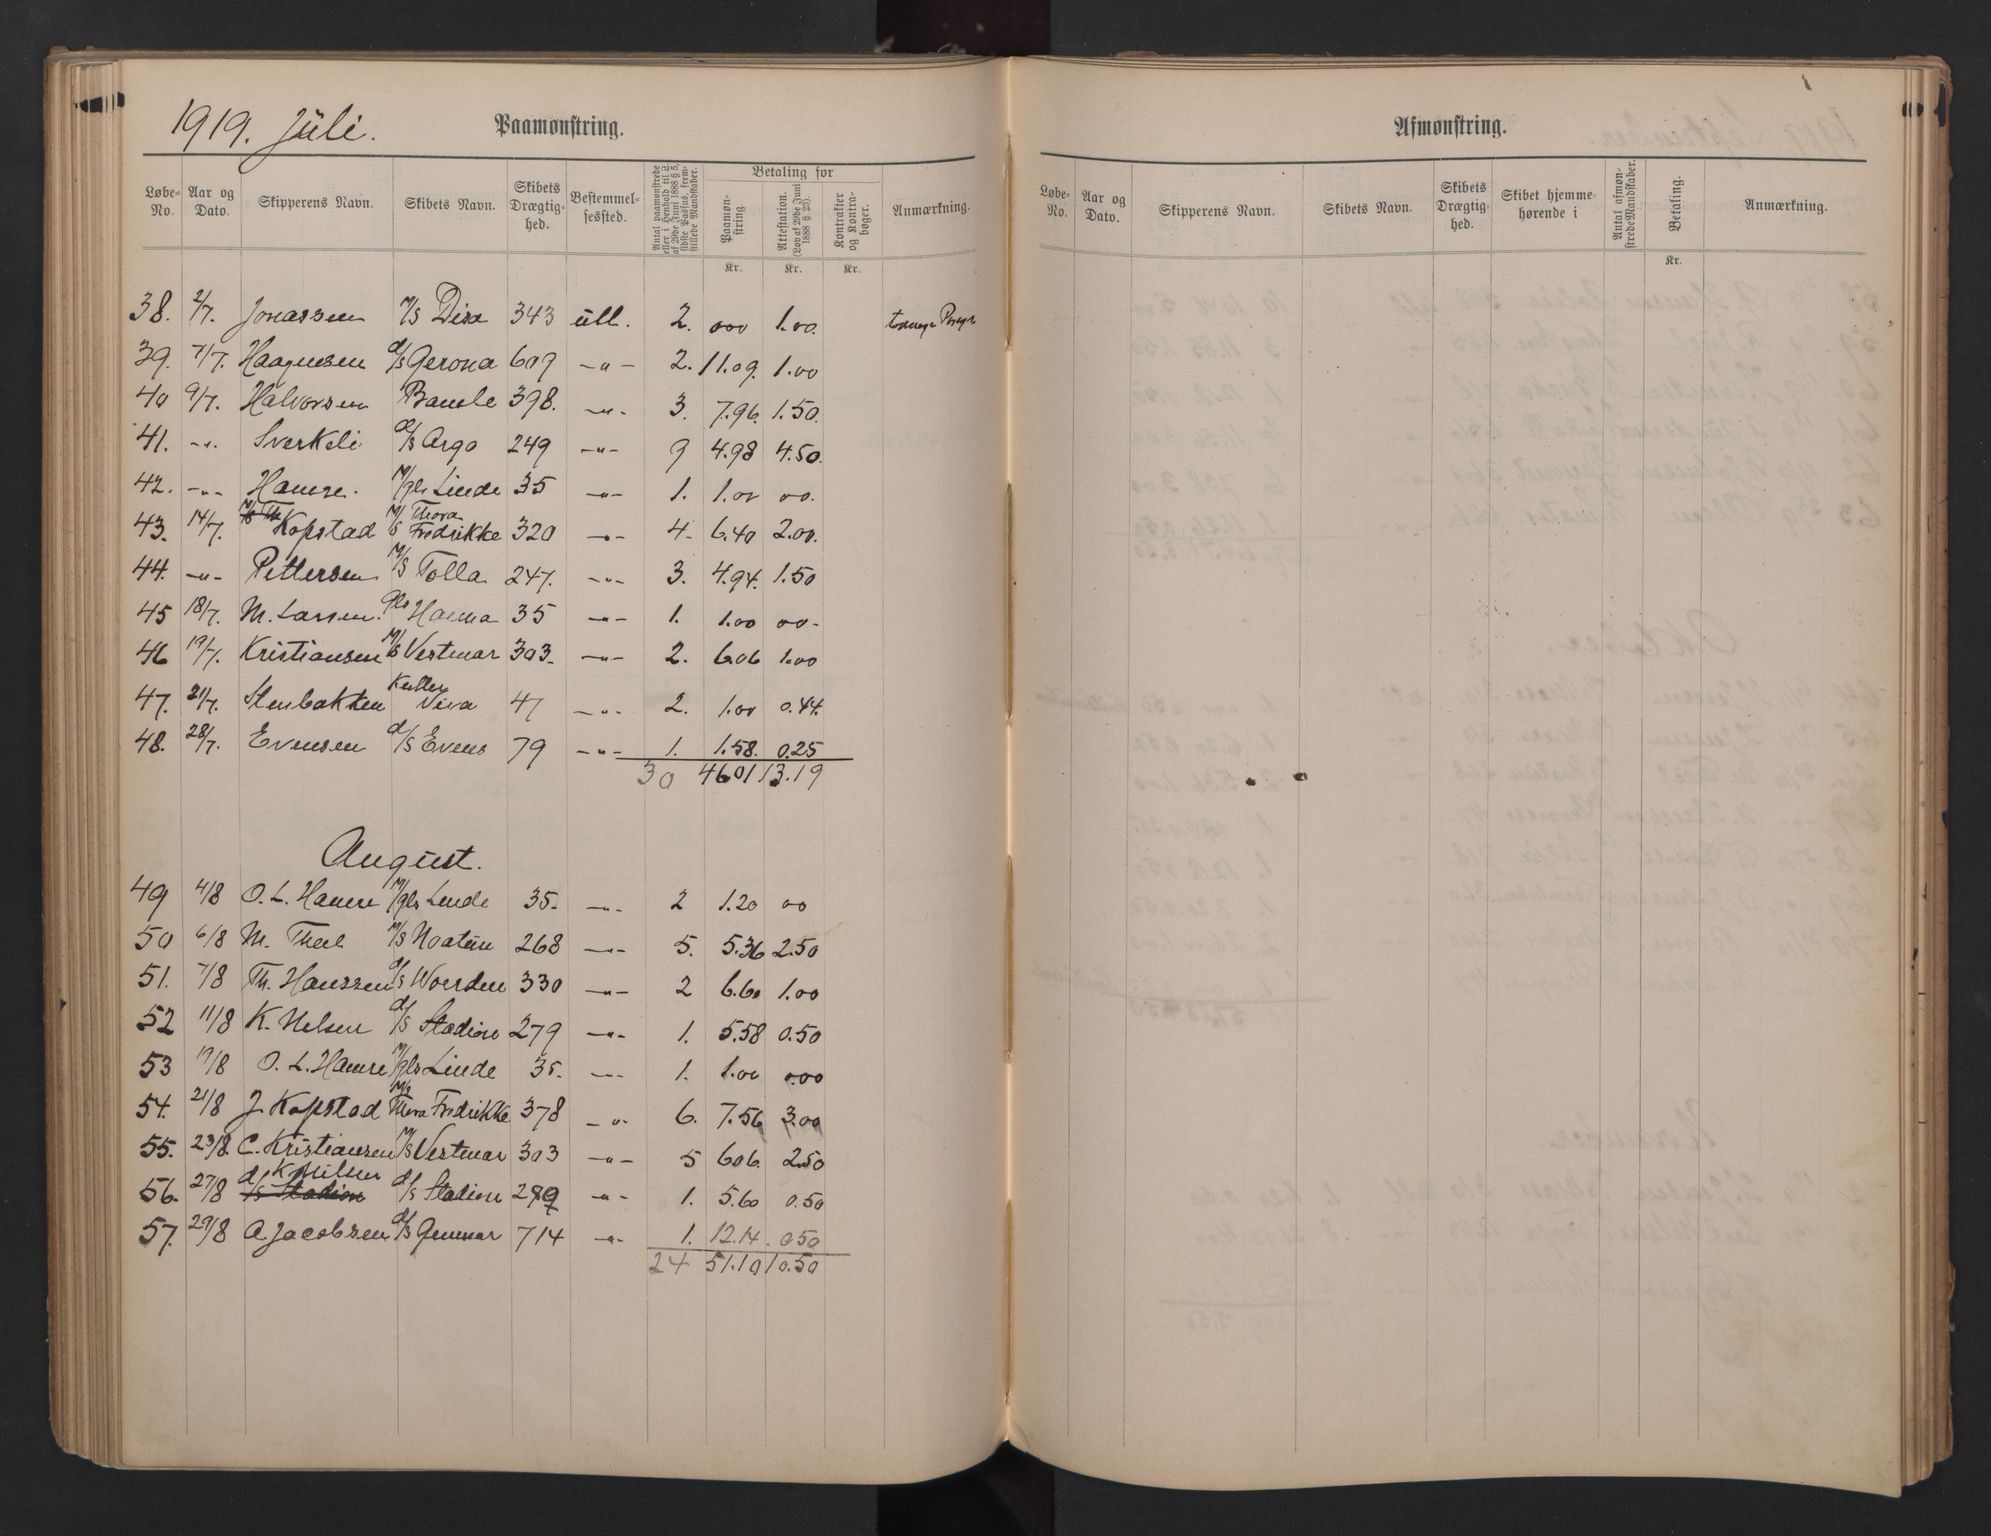 1919. Juli. Paamønstring.
Løbe-No. Aar og Dato. Skipperens Navn. Skibets Navn. Skibets Drægtig-hed. Bestemmel-sessted. Antal paamønstrede eller i Henhold til L. af 29de Juni 1888 § 5, sidste Passus, frem-stillede Mandskaber. Betaling for Paamøn-string. Attestation. (Lov af 29de Juni 1888 § 23). Kontrakter og Kontra-bøger. Anmærkning.
Kr. Kr. Kr.
38. 2/7. Jonassen M/S Disa 343 utl. 2. 000 1.00.
39. 7/7. Haagensen d/s Gerona 609 -"- 2. 11.09. 1.00
40 9/7. Halvorsen Bamble 398. -"- 3. 7.96. 1.50.
41. -"- Sverkeli d/s Argo 249 -"- 9 4.98 4.50.
42. -"- Hamre. M/gls Linde 35 -"- 1. 1.00 00.
43. 14/7. Kopstad M/S Thora Fredrikke 320 -"- 4- 6.40 2.00.
44. -"- Pettersen M/S Tolla 247. -"- 3. 4.94. 1.50
45 18/7. M. Larsen. gls Hanna 35 -"- 1. 1.00 00-
46 19/7. Kristiansen M/S Vestmar 303. -"- 2. 6.06 1.00
47. 21/7. Stenbakken Kutter Viva 47 -"- 2. 1.00 0.44.
48. 28/7. Evensen d/s Evens 79 -"- 1. 1.58. 0.25
30 46.01 13.19
August.
49 4/8 O. L. Hamre M/gls Linde 35. -"- 2 1.20 00
50 6/8 M. Thele M/S Noatun 268 -"- 5. 5.36 2.50
51. 7/8 Th. Hanssen d/s Woerden 330 -"- 2 6.60 1.00
52 11/8 K. Nelsen d/s Stadion 279 -"- 1. 5.58 0.50
53 19/8 O. L. Hamre M/gls Linde 35. -"- 1. 1.00 0.00
54. 21/8 J. Kopstad M/S Thora Fredrikke 378 -"- 6. 7.56 3.00
55. 23/8. C. Kristiansen M/S Vestmar 303 -"- 5 6.06. 2.50
56. 27/8 d/s Stadion K. Nilsen d/s Stadion 279 -"- 1. 5.60 0.50
57. 29/8 A. Jacobsen d/s Gunnar 714 -"- 1. 12.14. 0.50
24 51.10 10.50
Afmønstring.
Løbe-No. Aar og Dato. Skipperens Navn. Skibets Navn. Skibets Drægtig-hed. Skibet hjemme-hørende i Antal afmøn-strede Mandskaber. Betaling. Anmærkning.
Kr.